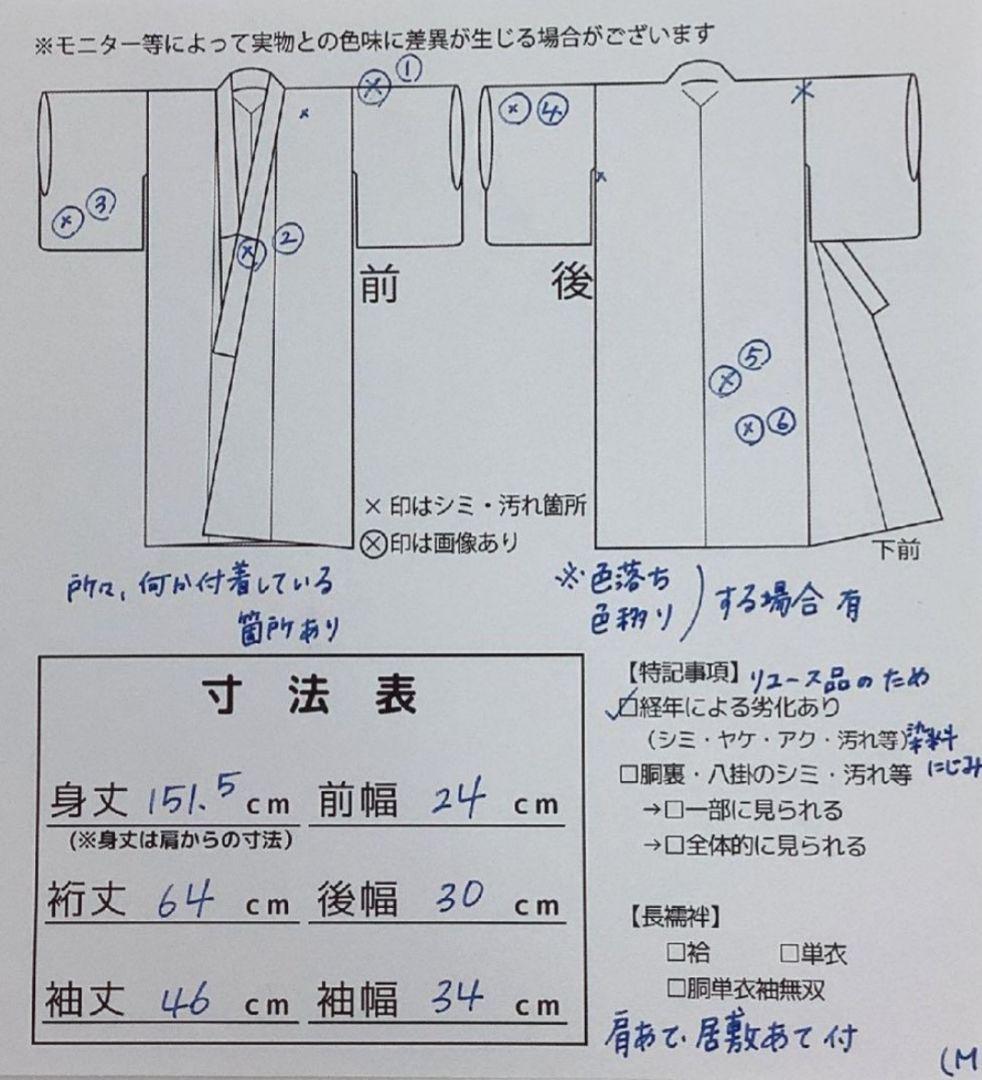 ※モニター等によって実物との色味に差異が生じる場合がございます
× ①
×
× ③
× ②
前
× ④
×
×
後
× ⑤
× ⑥
× 印はシミ・汚れ箇所
⊗印は画像あり
下前
所々、何か付着している
箇所あり
※色落ち
色移り
する場合 有
寸 法 表
身丈 151.5 cm 前幅 24 cm
(※身丈は肩からの寸法)
裄丈 64 cm 後幅 30 cm
袖丈 46 cm 袖幅 34 cm
【特記事項】リユース品のため
☑経年による劣化あり
(シミ・ヤケ・アク・汚れ等)染料
にじみ
□胴裏・八掛のシミ・汚れ等
→□一部に見られる
→□全体的に見られる
【長襦袢】
□袷 □単衣
□胴単衣袖無双
肩あて・居敷あて付
(M